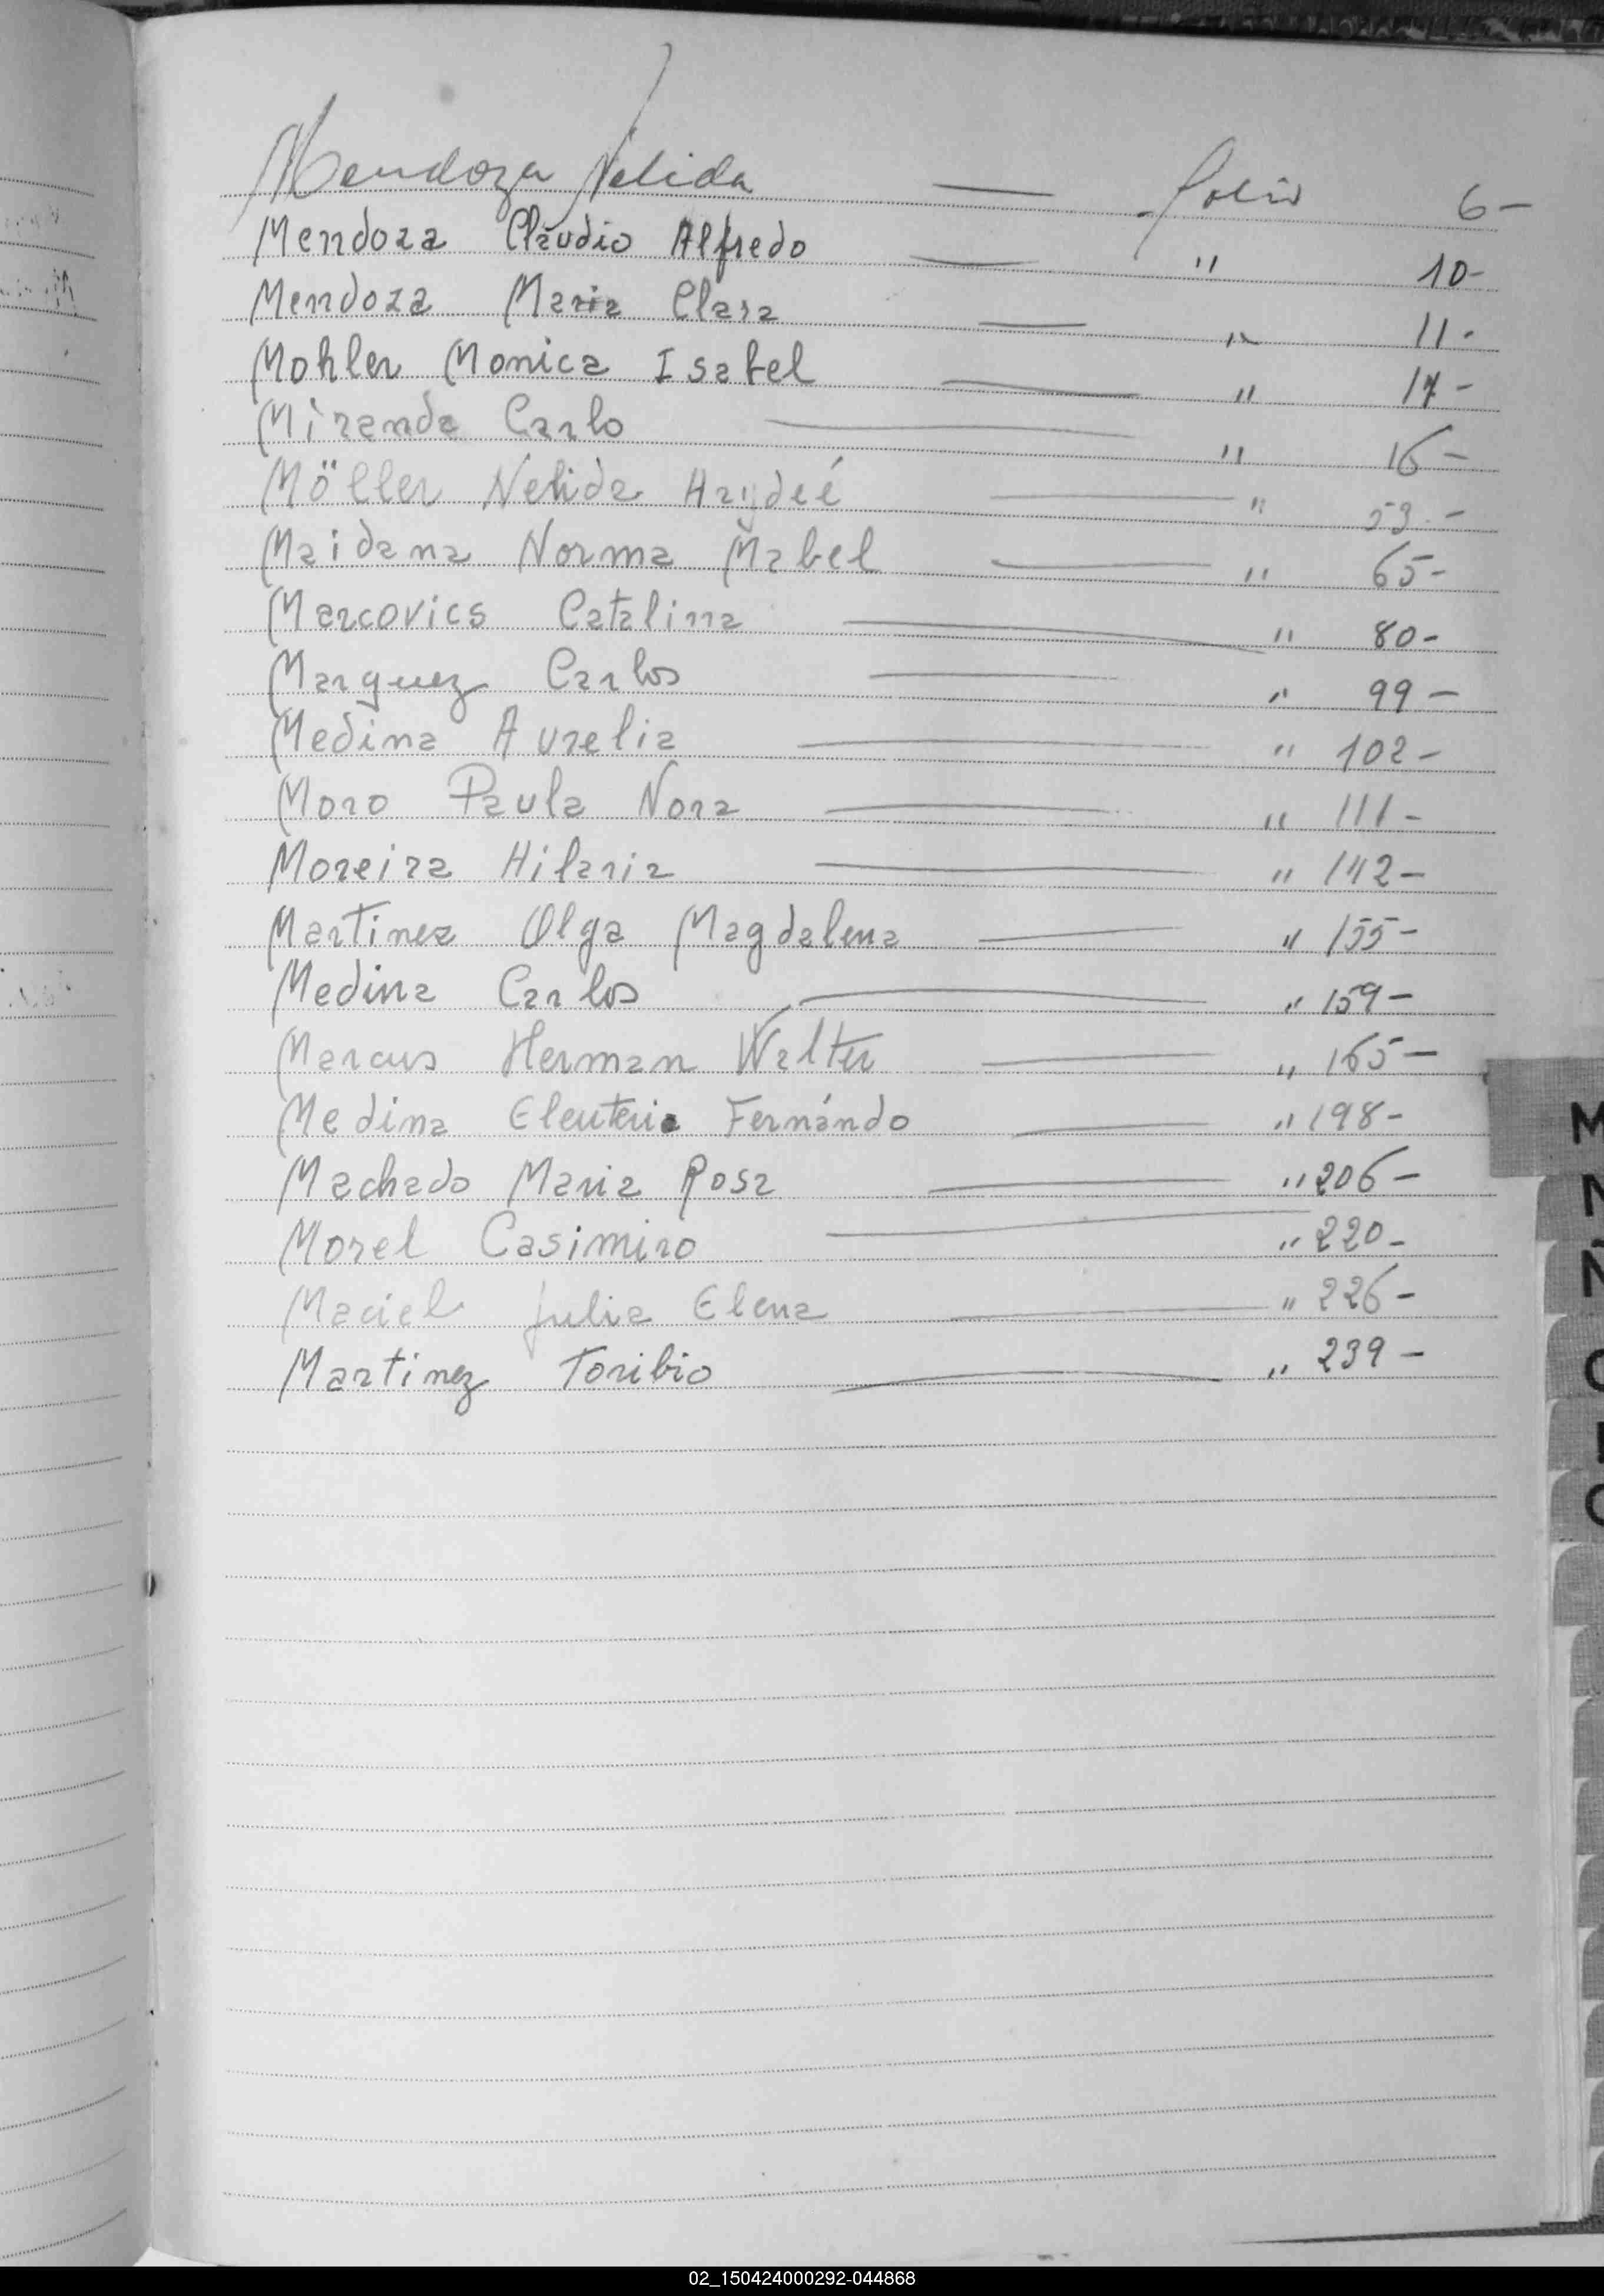 Mendoza Nelida — folio 6-
Mendoza Claudio Alfredo — " 10-
Mendoza Maria Clara — " 11-
Mohler Monica Isabel — " 17-
Miranda Carlo — " 16-
Möller Nelida Haydeé — " 53-
Maidana Norma Mabel — " 65-
Marcovics Catalina — " 80-
Marquez Carlos — " 99-
Medina Aurelia — " 102-
Moro Paula Nora — " 111-
Moreira Hilaria — " 142-
Martinez Olga Magdalena — " 155-
Medina Carlos — " 159-
Marcus Herman Walter — " 165-
Medina Eleuterio Fernándo — " 198-
Machado Maria Rosa — " 206-
Morel Casimiro — " 220-
Maciel Julia Elena — " 226-
Martinez Toribio — " 239-
M
N
Ñ
02_150424000292-044868